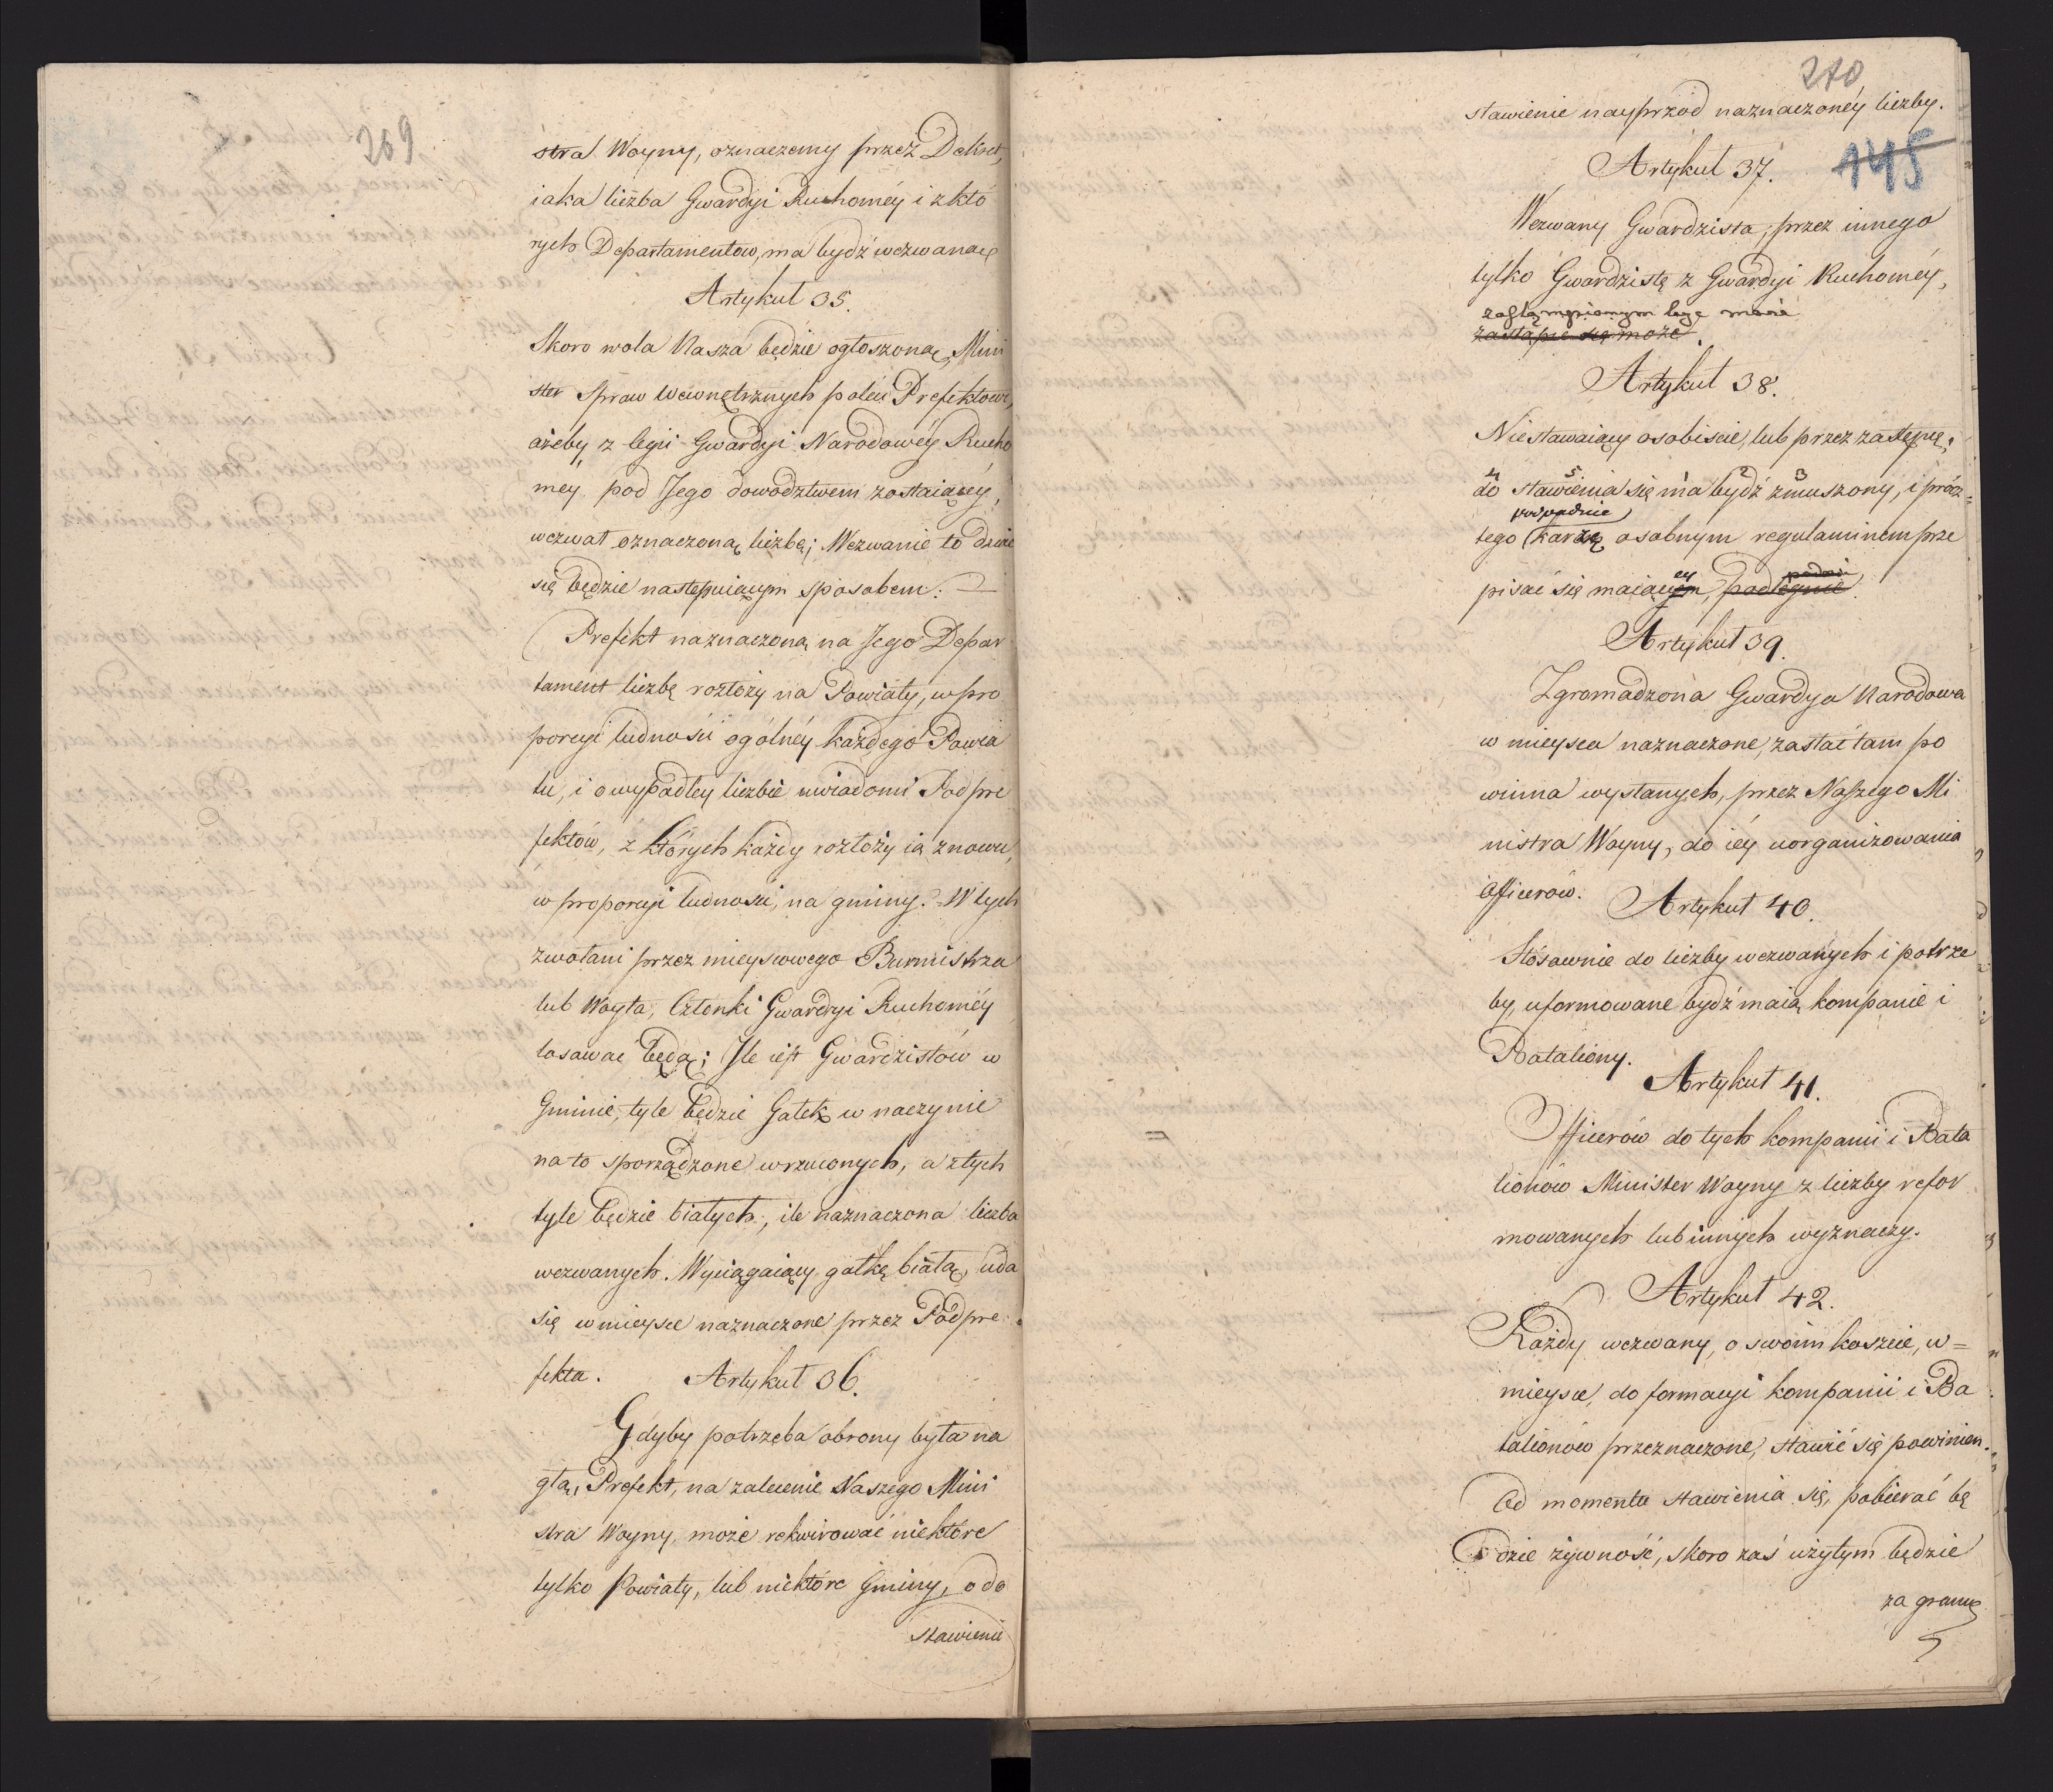 269
stra Woyny, oznaczemy przez Dekret,
iaka liczba Gwardyi Ruchoméy i z któ
rych Departamentów, ma bydź wezwaną
Artykuł 35.
Skoro wola Nasza będzie ogłoszoną, Mini
ster Spraw Wewnętrznych poleci Prefektowi,
ażeby z legii Gwardyi Narodowéy Rucho
méy pod Jego dowództwem zostaiącéy,
wezwał oznaczoną liczbę; Wezwanie to dziać
się będzie następuiącym sposobem.
Prefekt naznaczoną na Jego Depar
tament liczbę rozłoży na Powiaty, w pro
porcyi ludności ogólnéy każdego Powia
tu, i o wypadłey liczbie uwiadomi Podpre
fektów, z których każdy rozłoży ią znowu,
w proporcyi ludności, na gminy. W tych
zwołani przez mieyscowego Burmistrza
lub Woyta, Członki Gwardyi Ruchoméy
losować będą; Ile iest Gwardzistów w
Gminie, tyle będzie Gałek w naczynie
na to sporządzone wrzuconych, a z tych
tyle będzie białych, ile naznaczona liczba
wezwanych. Wyciągaiący gałkę białą, uda
się w mieysce naznaczone przez Podpre
fekta.
Artykuł 36.
Gdyby potrzeba obrony była na
głą, Prefekt, na zalecenie Naszego Mini
stra Woyny, może rekwirować niektóre
tylko Powiaty, lub niektóre Gminy, o do
stawienie
270
stawienie nayprzód naznaczonéy liczby.
145
Artykuł 37.
Wezwany Gwardzista, przez innego
tylko Gwardzistę z Gwardyi Ruchoméy,
zastąpionym być może
zastąpić się może.
Artykuł 38.
Niestawaiący osobiście, lub przez zastępcę,
4 5 1 2 3
do stawienia się ma bydź zmuszony, i prócz
podpadnie
tego karze osobnym regulaminem prze
ey
pisać się maiącym, podlegnie
Artykuł 39.
Zgromadzona Gwardya Narodowa
w mieysca naznaczone, zastać tam po
winna wysłanych, przez Naszego Mi
nistra Woyny, do iéy uorganizowania
Officerów.
Artykuł 40.
Stósownie do liczby wezwanych i potrze
by, uformowane bydź maią kompanie i
Bataliony.
Artykuł 41.
Officerów do tych kompanii i Bata
lionów Minister Woyny z liczby refor
mowanych lub innych wyznaczy.
Artykuł 42.
Każdy wezwany, o swoim koszcie, w=
mieysce, do formacyi kompanii i Ba
talionów przeznaczone, stawić się powinien.
Od momentu stawienia się, pobierać bę
dzie żywność, skoro zaś użytym będzie
za granicę